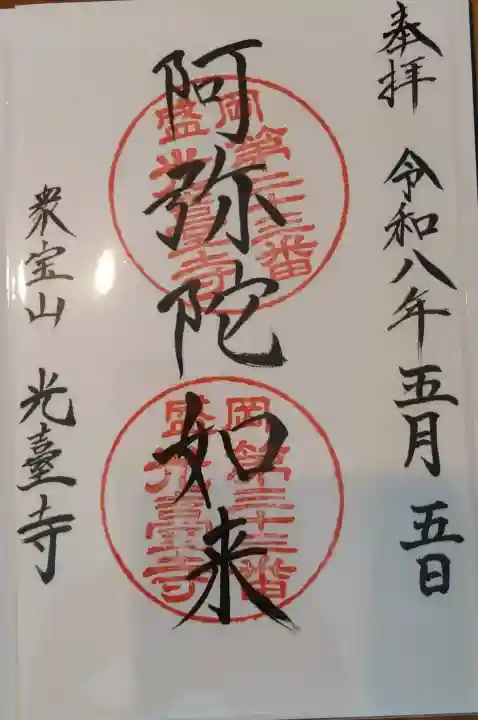 奉拝 令和八年五月五日
阿弥陀如来
盛岡第三十三番
光臺寺
盛岡第三十三番
光臺寺
衆宝山 光臺寺